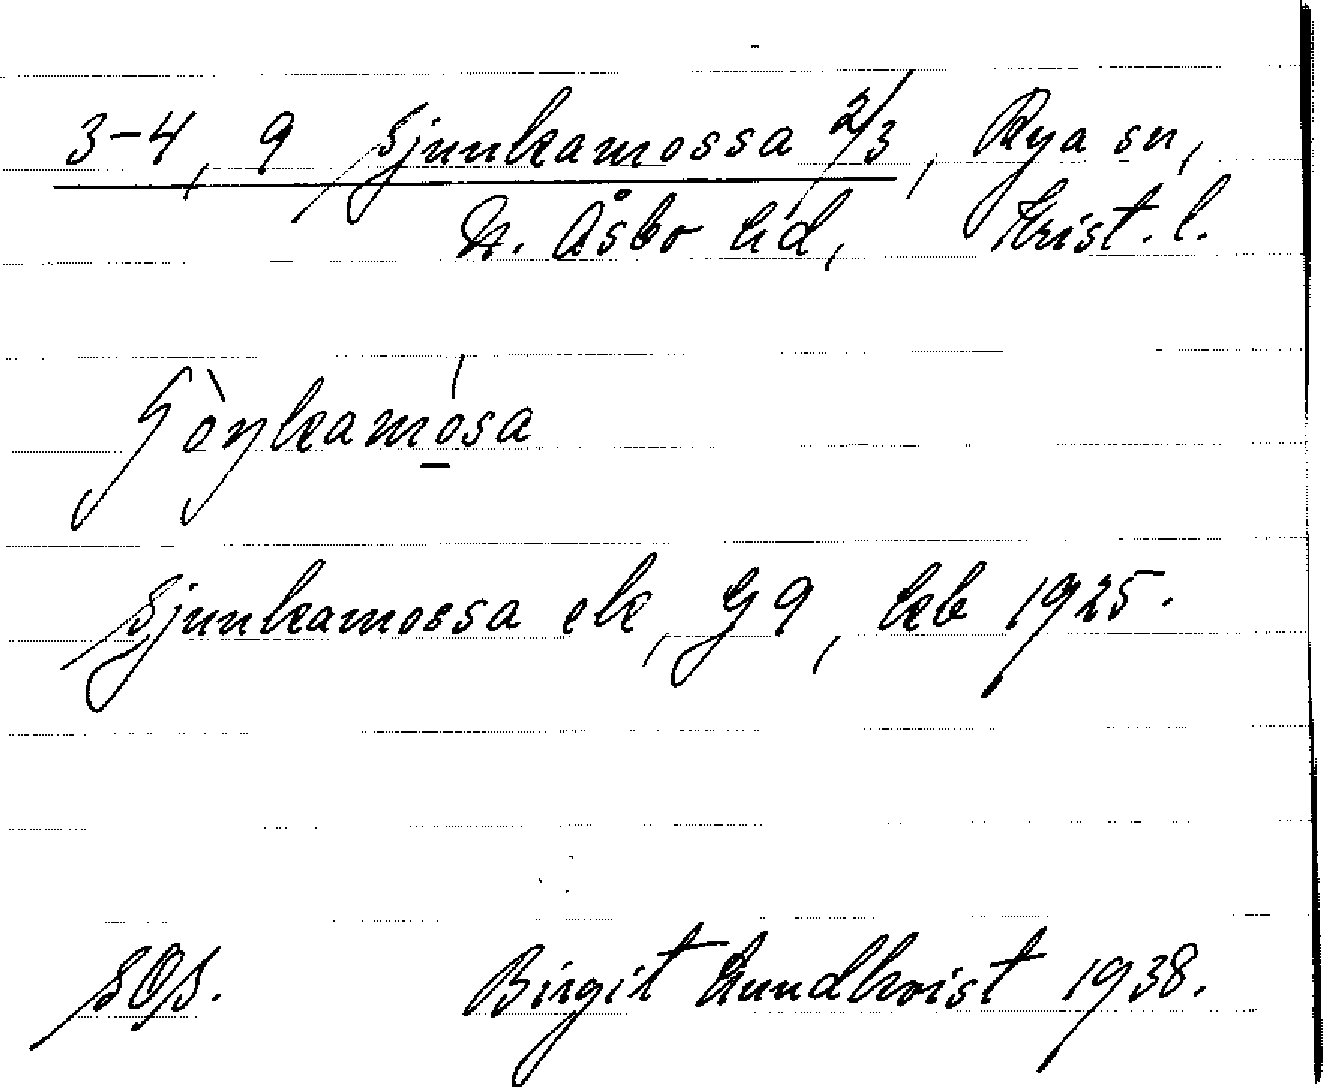 3-4, 9 Sjunkamossa 2/3, Rya sn,
N. Åsbo hd, Krist. l.
ʃòŋkamósa
Sjunkamossa ek, G 9, kb 1925.
SOS. Birgit Lundkvist 1938.